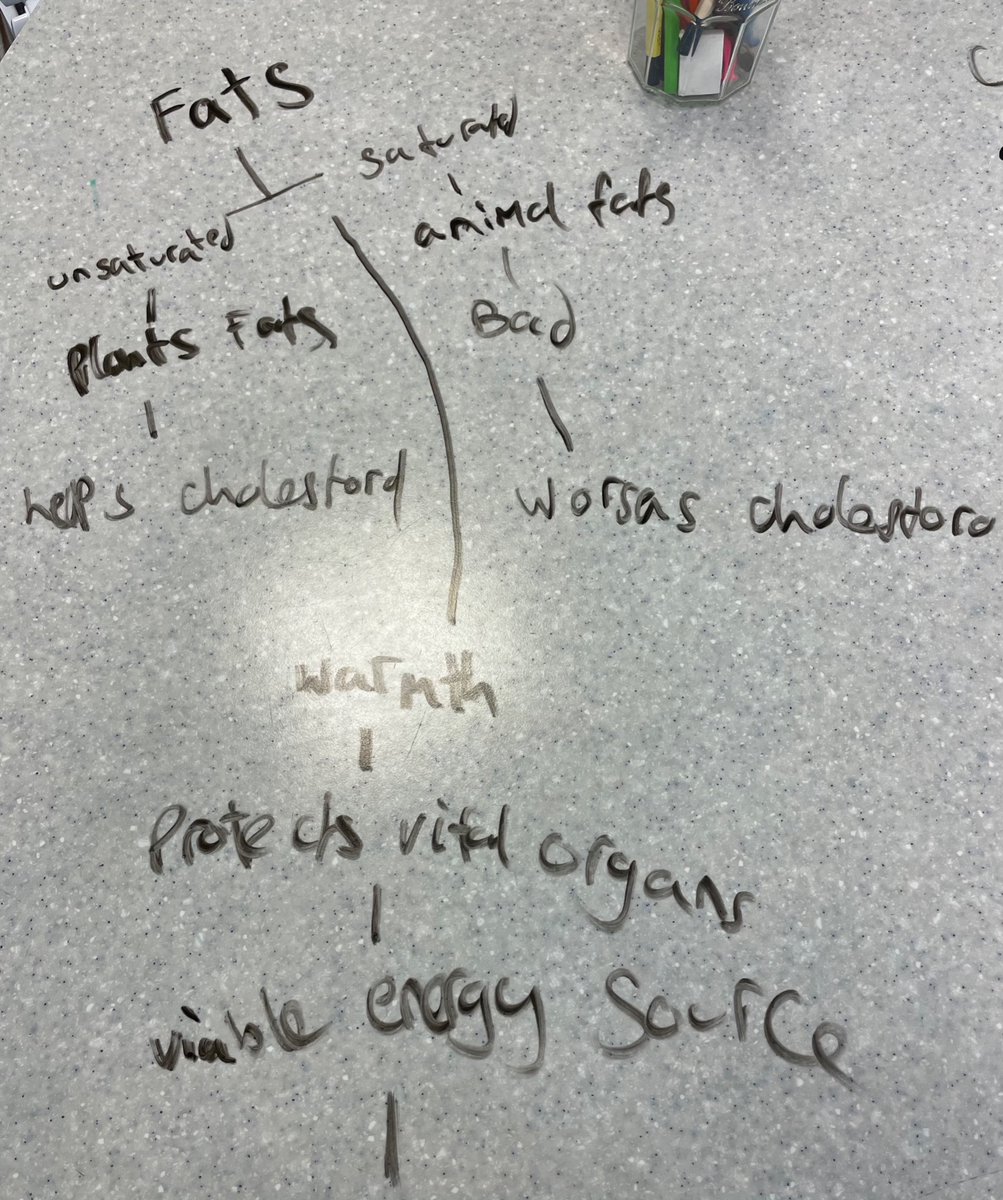 Fats
saturated
unsaturated
animal fats
Plants Fats
Bad
helps cholestorol
worsas cholestoro
warmth
Protects vital organs
viable energy source